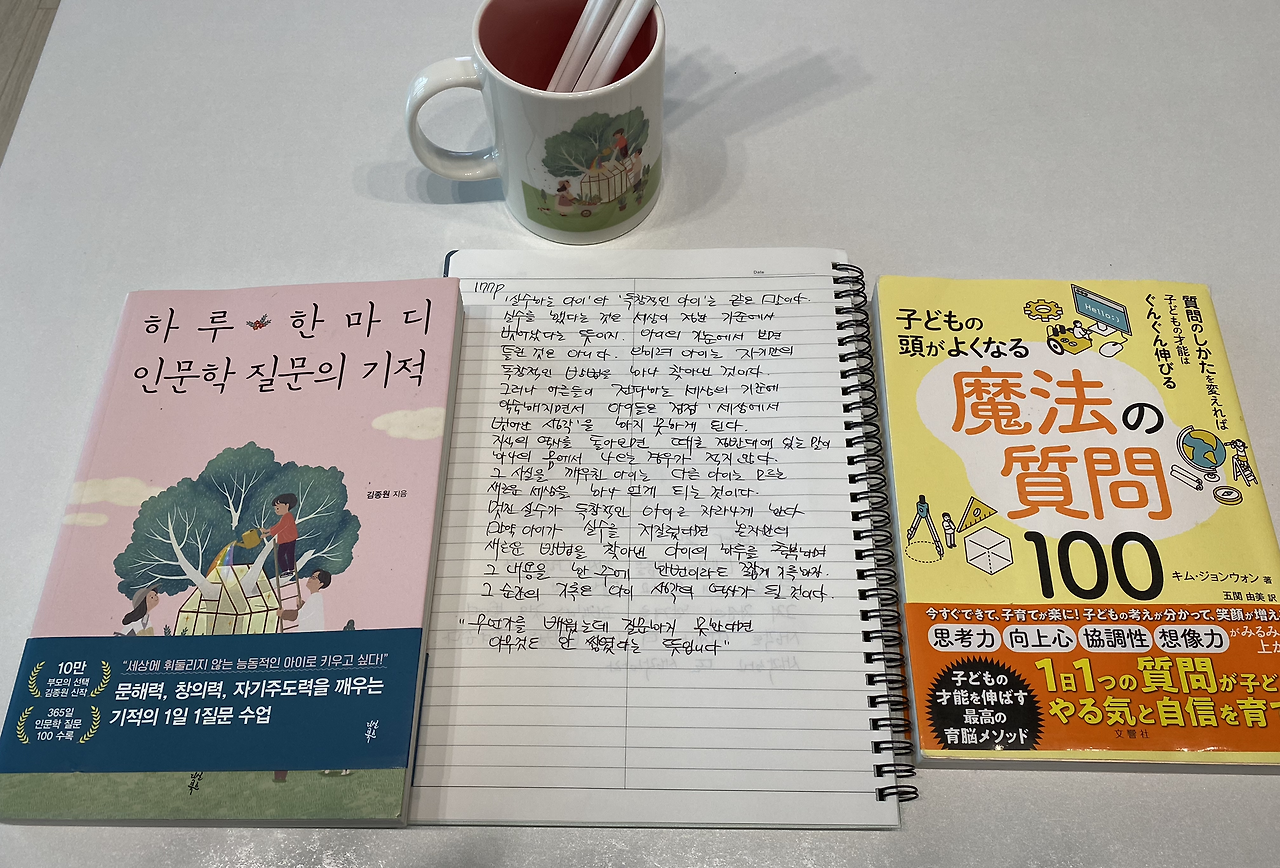 하루 한마디
인문학 질문의 기적
김종원 지음
10만
부모의 선택
김종원 신작
365일
인문학 질문
100 수록
"세상에 휘둘리지 않는 능동적인 아이로 키우고 싶다!"
문해력, 창의력, 자기주도력을 깨우는
기적의 1일 1질문 수업
Date
177p
'실수하는 아이'와 '독창적인 아이'는 같은 말이다.
실수를 했다는 것은 세상이 정한 기준에서
벗어났다는 뜻이지. 아이의 입장에서 보면
틀린 것은 아니다. 오히려 아이는 자기만의
독창적인 방법을 하나 찾아낸 것이다.
그러나 어른들이 전파하는 세상의 기준에
익숙해지면서 아이들은 점점 '세상에서
벗어난 생각'을 하지 못하게 된다.
지성의 역사를 돌아보면, 때로 정반대에 있는 말이
하나의 몸에서 나오는 경우가 적지 않다.
그 사실을 깨우친 아이는 다른 아이는 모르는
새로운 세상을 하나 얻게 되는 것이다.
멋진 실수가 독창적인 아이로 자라나게 한다
만약 아이가 실수를 저질렀다면 혼자만의
새로운 방법을 찾아낸 아이의 하루를 축복하며
그 내용을 한 주에 한번이라도 짧게 기록하자.
그 순간의 기록은 아이 생각의 역사가 될 것이다.
"무언가를 배웠는데 질문하지 못한다면
아무것도 안 배웠다는 뜻입니다"
子どもの
頭がよくなる
質問のしかたを変えれば
子どもの才能は
ぐんぐん伸びる
Hello:)
魔法の
質問
100
キム・ジョンウォン 著
五関 由美 訳
今すぐできて、子育てが楽に！子どもの考えが分かって、笑顔が増え
思考力 向上心 協調性 想像力 がみるみる
上か
子どもの
才能を伸ばす
最高の
育脳メソッド
1日1つの質問が子ど
やる気と自信を育て
文響社